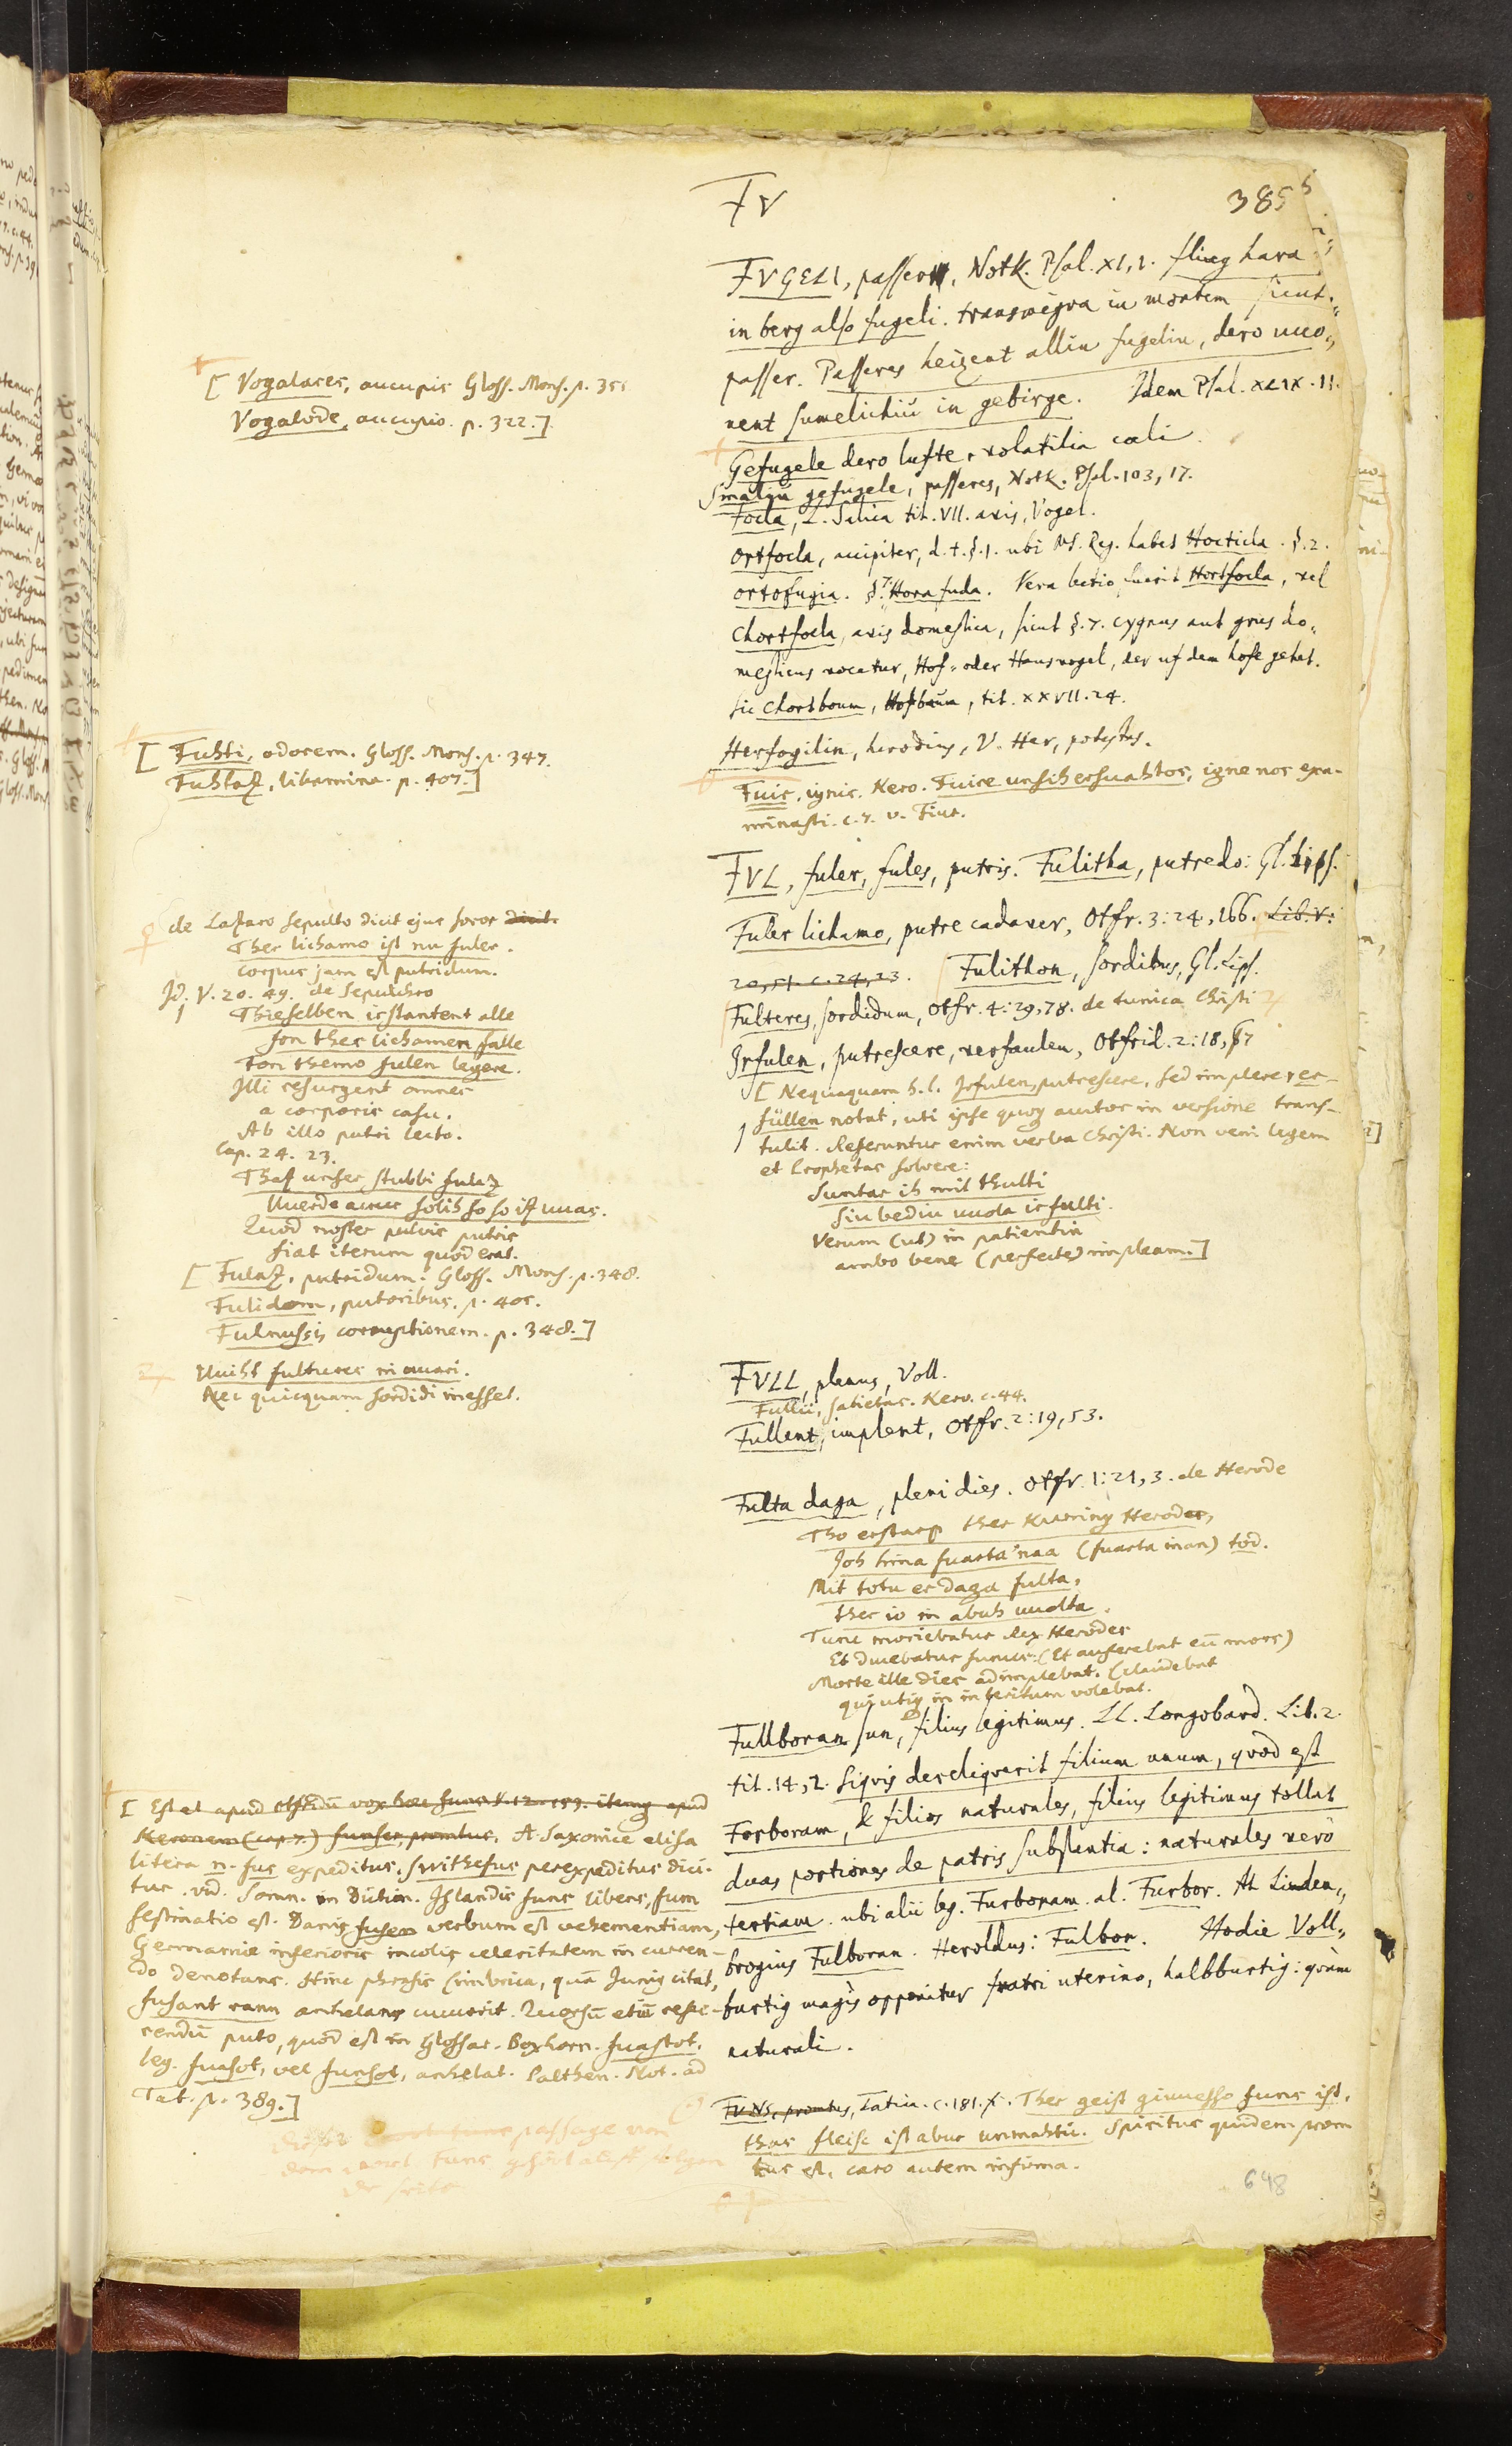 FV
385
FVGELI, passer, Notk. Psal. XI, 1. flieg hara
in berg also fugeli. transmigra in montem sicut
passer. Passeres heizent alliu fugeliu, dero uuo„
nent sumelichiu in gebirge. Idem Psal. XLIX. 11.
Gefugele dero lufte, volatilia cœli
Smaliu gefugele, passeres, Notk. Psal. 103, 17.
Focla, L. Salica tit. VII. avis, Vogel.
Ortfocla, accipiter, d. t. §. 1. ubi MS. Reg. habet Hocticla. §. 2.
ortofugia. §. 7. Hora fuda. Vera lectio fuerit Hortfocla, vel
Chortfocla, avis domestica, sicut §. 7. cygnus aut grus do„
mesticus vocatur, Hof= oder Hausvogel, der uf dem hofe gehet.
sic chortboum, Hofbaum, tit. XXVII. 24.
Herfogilin, herodius, V. Her, potestas.
Fuir, ignis. Kero. Fuire unsih ersuahtos, igne nos exa-
minasti. c. 7. v. Fiur.
FVL, fuler, fules, putris. Fulitha, putredo: Gl. Lips.
Fuler lichamo, putre cadaver, Otfr. 3:24, 166. Lib. V:
20, 51. c. 24, 23. Fulithon, sordibus, Gl. Lips.
Fulteres, sordidum, Otfr. 4:29, 78. de tunica Christi
Irfulen, putrescere, verfaulen, Otfrid. 2:18, 7
[Nequaquam h. l. Irfulen, putrescere, sed implere er-
füllen notat, uti ipse quoq autor in versione trans-
tulit. Referuntur enim verba Christi. Non veni legem
et Prophetas solvere:
Suntar ih mit thulti
Siu bediu uuola irfulti.
Verum (ut) in patientia
ambo bene (perfecte) impleam.]
FVLL, plenus, Voll.
Fullii, satietas. Kero. c. 44.
Fullent, implent, Otfr. 2:19, 53.
Fulta daga, pleni dies. Otfr. 1:21, 3. de Herode
Tho erstarp ther Kuning Herodes,
Joh hina fuarta'naa (fuarta inan) tod.
Mit totu er daga fulta,
ther io in abuh uuolta.
Tunc moriebatur Rex Herodes
Et ducebatur funus. (Et auferebat eū mors)
Morte ille dies adimplebat. (claudebat
qui utiq in interitum volebat.
Fullboran sun, filius legitimus. LL. Longobard. Lib. 2.
tit. 14, 2. Siqvis dereliqverit filium unum, qvod est
Forboram, & filios naturales, filius legitimus tollat
duas portiones de patris substantia: naturales verò
tertiam. ubi alii leg. Furboram. al. Furbor. At Linden„
brogius Fulboran. Heroldus: Fulbor. Hodie Voll„
burtig magis opponitur fratri uterino, halbburtig: qvàm
naturali.
FVNS, promtus, Tatia. c. 181. Ther geist giuuesso funs ist,
thaz fleisc ist abur unmahtic. Spiritus quidem prom
tus est, caro autem infirma.
648
[Vogalares, aucupis Gloss. Mons. p. 355
Vogalode, aucupio. p. 322.]
[Fuhti, odorem. Gloss. Mons. p. 347.
Fuhtaz, libamina. p. 407.]
de Lazaro sepulto dicit ejus soror dicit.
Ther lichamo ist nu fuler.
corpus jam est putridum.
Id. V. 20. 49. de Sepulchro
Thieselben irstantent alle
fon thes lichamen falle
Fon themo fulen legere.
Illi resurgent omnes
a corporis casu.
Ab illo putri lecto.
Cap. 24. 23.
Thaz unser stubbi fulaz
Uuerde auur solih so so iz uuas.
Quod noster pulvis putris
fiat iterum quod erat.
[Fulaz, putridum. Gloss. Mons. p. 348.
Fulidom, putoribus. p. 405.
Fulnussi, corruptionem. p. 348.]
Uuiht fulteres in uuari.
Nec quicquam sordidi inesset.
[Est et apud Otfridū vox hæc funs V. 12. 159. itemq apud
Keronem (cap. 7.) funser, promtus. A. Saxonice elisa
litera n. fus expeditus, swithefus perexpeditus dici-
tur. vid. Somn. in Diction. Islandis funs libens, fum
festinatio est. Danis fusen verbum est vehementiam,
Germaniæ inferioris incolis celeritatem in curren-
do denotans. Hinc phrasis Cimbrica, quā Junig citat,
fusant rann anhelans cucurrit. Quorsū etiā refe-
rendū puto, quod est in Glossar. Boxhorn. fuastot.
leg. fuasot, vel funsot, anhelat. Palthen. Not. ad
Tat. p. 389.]
passage von